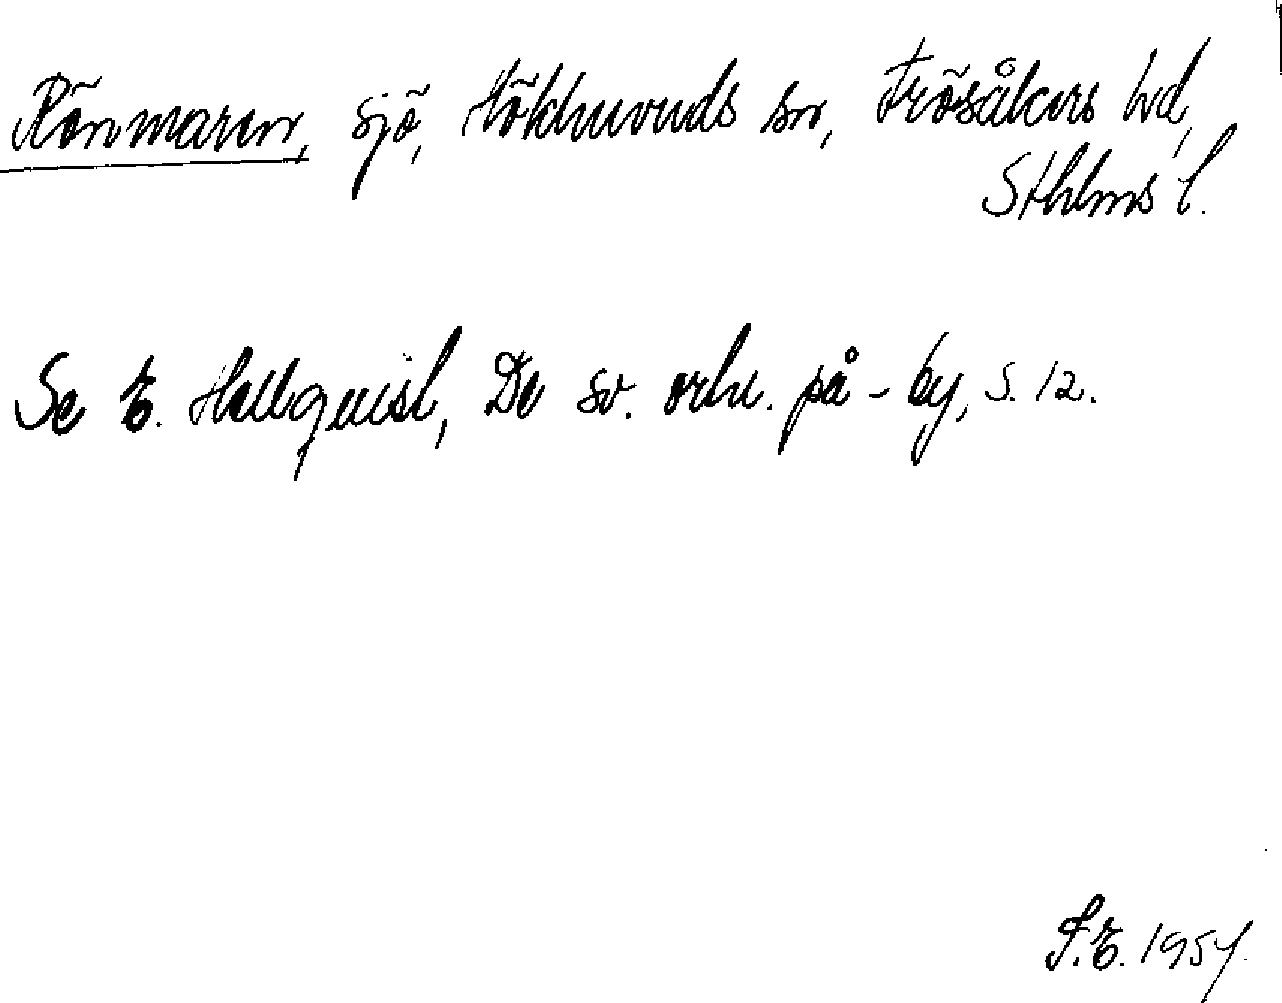 Rönmaren, sjö, Hökhuvuds sn, Frösåkers hd,
Sthlms l.
Se E. Hellquist, De sv. ortn. på -by, s. 12.
S.E. 1957.